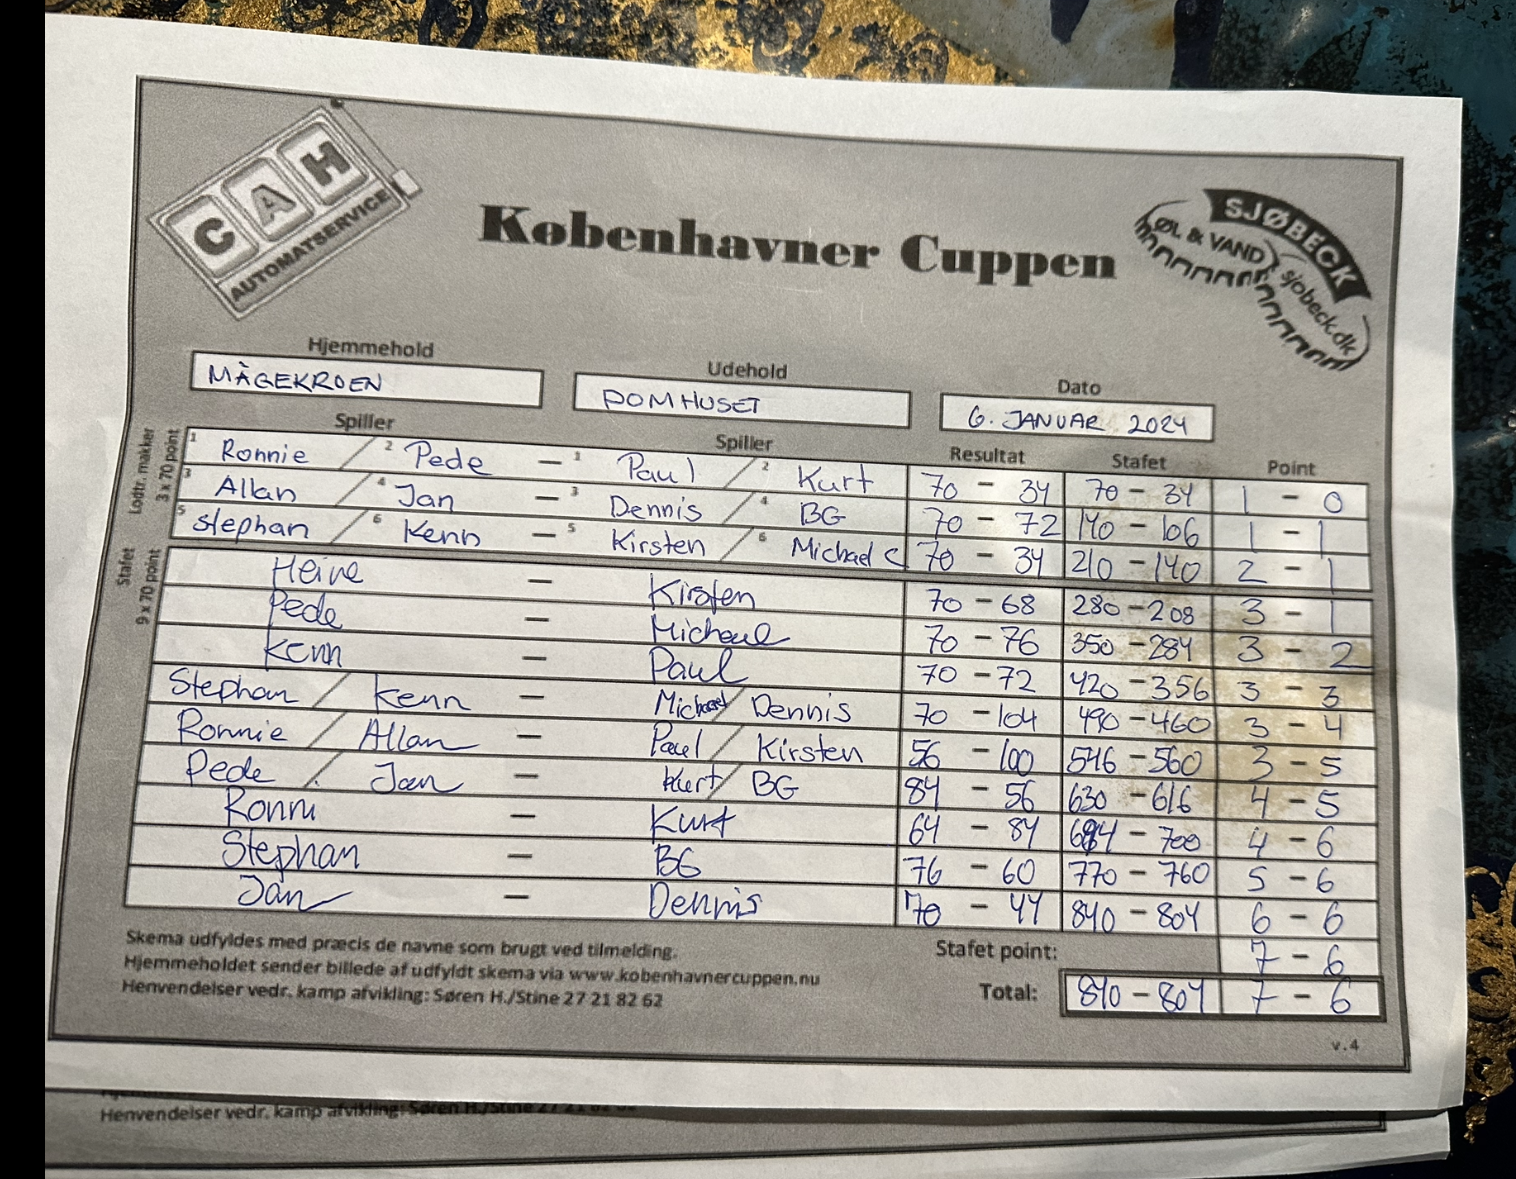 CAH
AUTOMATSERVICE
Københavner Cuppen
SJØBECK
ØL & VAND
sjobeck.dk
Hjemmehold Udehold Dato
MÅGEKROEN DOMHUSET 6. JANUAR 2024
Spiller Spiller Resultat Stafet Point
Lodtr. makker
3 x 70 point
1 Ronnie / 2 Pede - 1 Paul / 2 Kurt 70 - 34 70 - 34 1 - 0
3 Allan / 4 Jan - 3 Dennis / 4 BG 70 - 72 140 - 106 1 - 1
5 stephan / 6 Kenn - 5 Kirsten / 6 Michael C 70 - 34 210 - 140 2 - 1
Stafet
9 x 70 point
Heine - Kirsten 70 - 68 280 - 208 3 - 1
Pede - Michael 70 - 76 350 - 284 3 - 2
Kenn - Paul 70 - 72 420 - 356 3 - 3
Stephan / Kenn - Michael / Dennis 70 - 104 490 - 460 3 - 4
Ronnie / Allan - Paul / Kirsten 56 - 100 546 - 560 3 - 5
Pede / Jan - Kurt / BG 84 - 56 630 - 616 4 - 5
Ronni - Kurt 64 - 84 694 - 700 4 - 6
Stephan - BG 76 - 60 770 - 760 5 - 6
Jan - Dennis 70 - 44 840 - 804 6 - 6
Skema udfyldes med præcis de navne som brugt ved tilmelding. Stafet point: 7 - 6
Hjemmeholdet sender billede af udfyldt skema via www.kobenhavnercuppen.nu
Henvendelser vedr. kamp afvikling: Søren H./Stine 27 21 82 62 Total: 840 - 804 7 - 6
v.4
Henvendelser vedr. kamp afvikling: Søren H./Stine 27 21 82 62